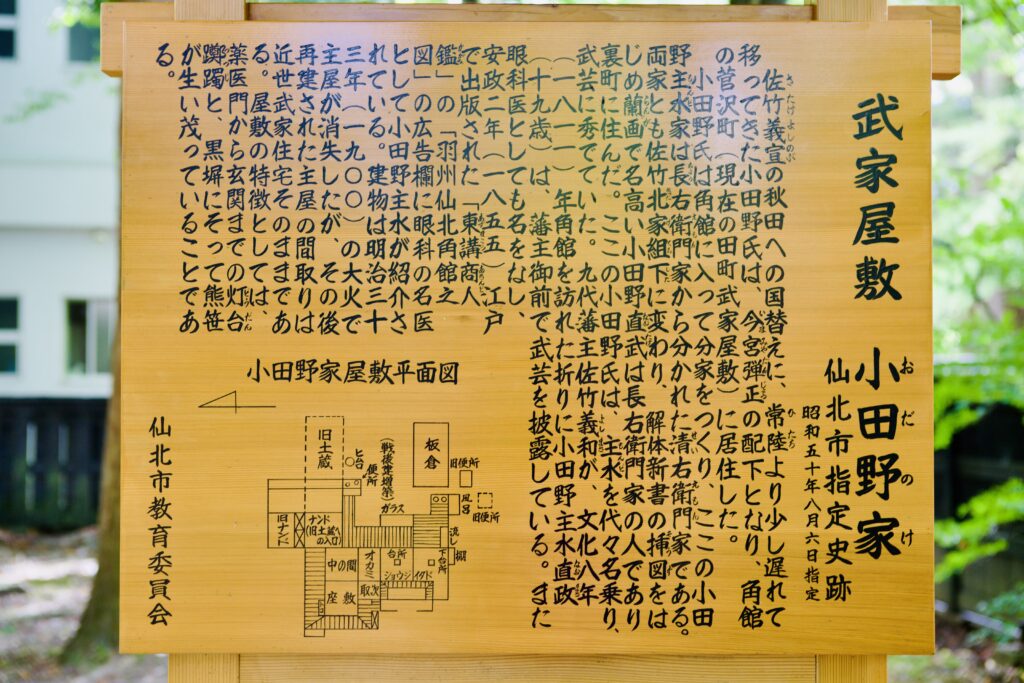 武家屋敷 小田野家
おだのけ
仙北市指定史跡
昭和五十年八月六日指定
佐竹義宣の秋田への国替えに、常陸より少し遅れて
移ってきた小田野氏は、今宮弾正の配下となり、角館
の菅沢町(現在の田町武家屋敷)に居住した。
小田野氏は角館に入って分家をつくり、ここの小田
野主水家は長右衛門家から分かれた清右衛門家である。
両家とも佐竹北家組下に変わり、解体新書の挿図をは
じめ蘭画で名高い小田野直武は長右衛門家の人であり
裏町に住んだ。この小田野氏は、主水を代々名乗り、
武芸に秀でていた。九代藩主佐竹義和が、文化八年
(一八一一)年角館を訪れた折りに小田野主水直政
(十九歳)は、藩主御前で武芸を披露している。また
眼科医としても名をなし、
安政二年(一八五五)江戸
で出版された「東講商人
鑑」の「羽州仙北角館之
図」の広告欄に眼科の名医
として小田野主水が紹介さ
れている。建物は明治三十
三年(一九〇〇)の大火で
主屋が消失したが、その後
再建された主屋の間取りは
近世武家住宅そのままであ
る。屋敷の特徴としては、
薬医門から玄関までの灯台
躑躅と、黒塀にそって熊笹
が生い茂っていることであ
る。
小田野家屋敷平面図
板倉
旧便所
風呂
旧便所
流し
棚
下台所
旧土蔵
便所
(戦後兼増築)
ガラス
旧ナンド
ナンド
(旧土蔵への入口)
中の間
オカミ
台所
ショウジイタド
座敷
取次
仙北市教育委員会